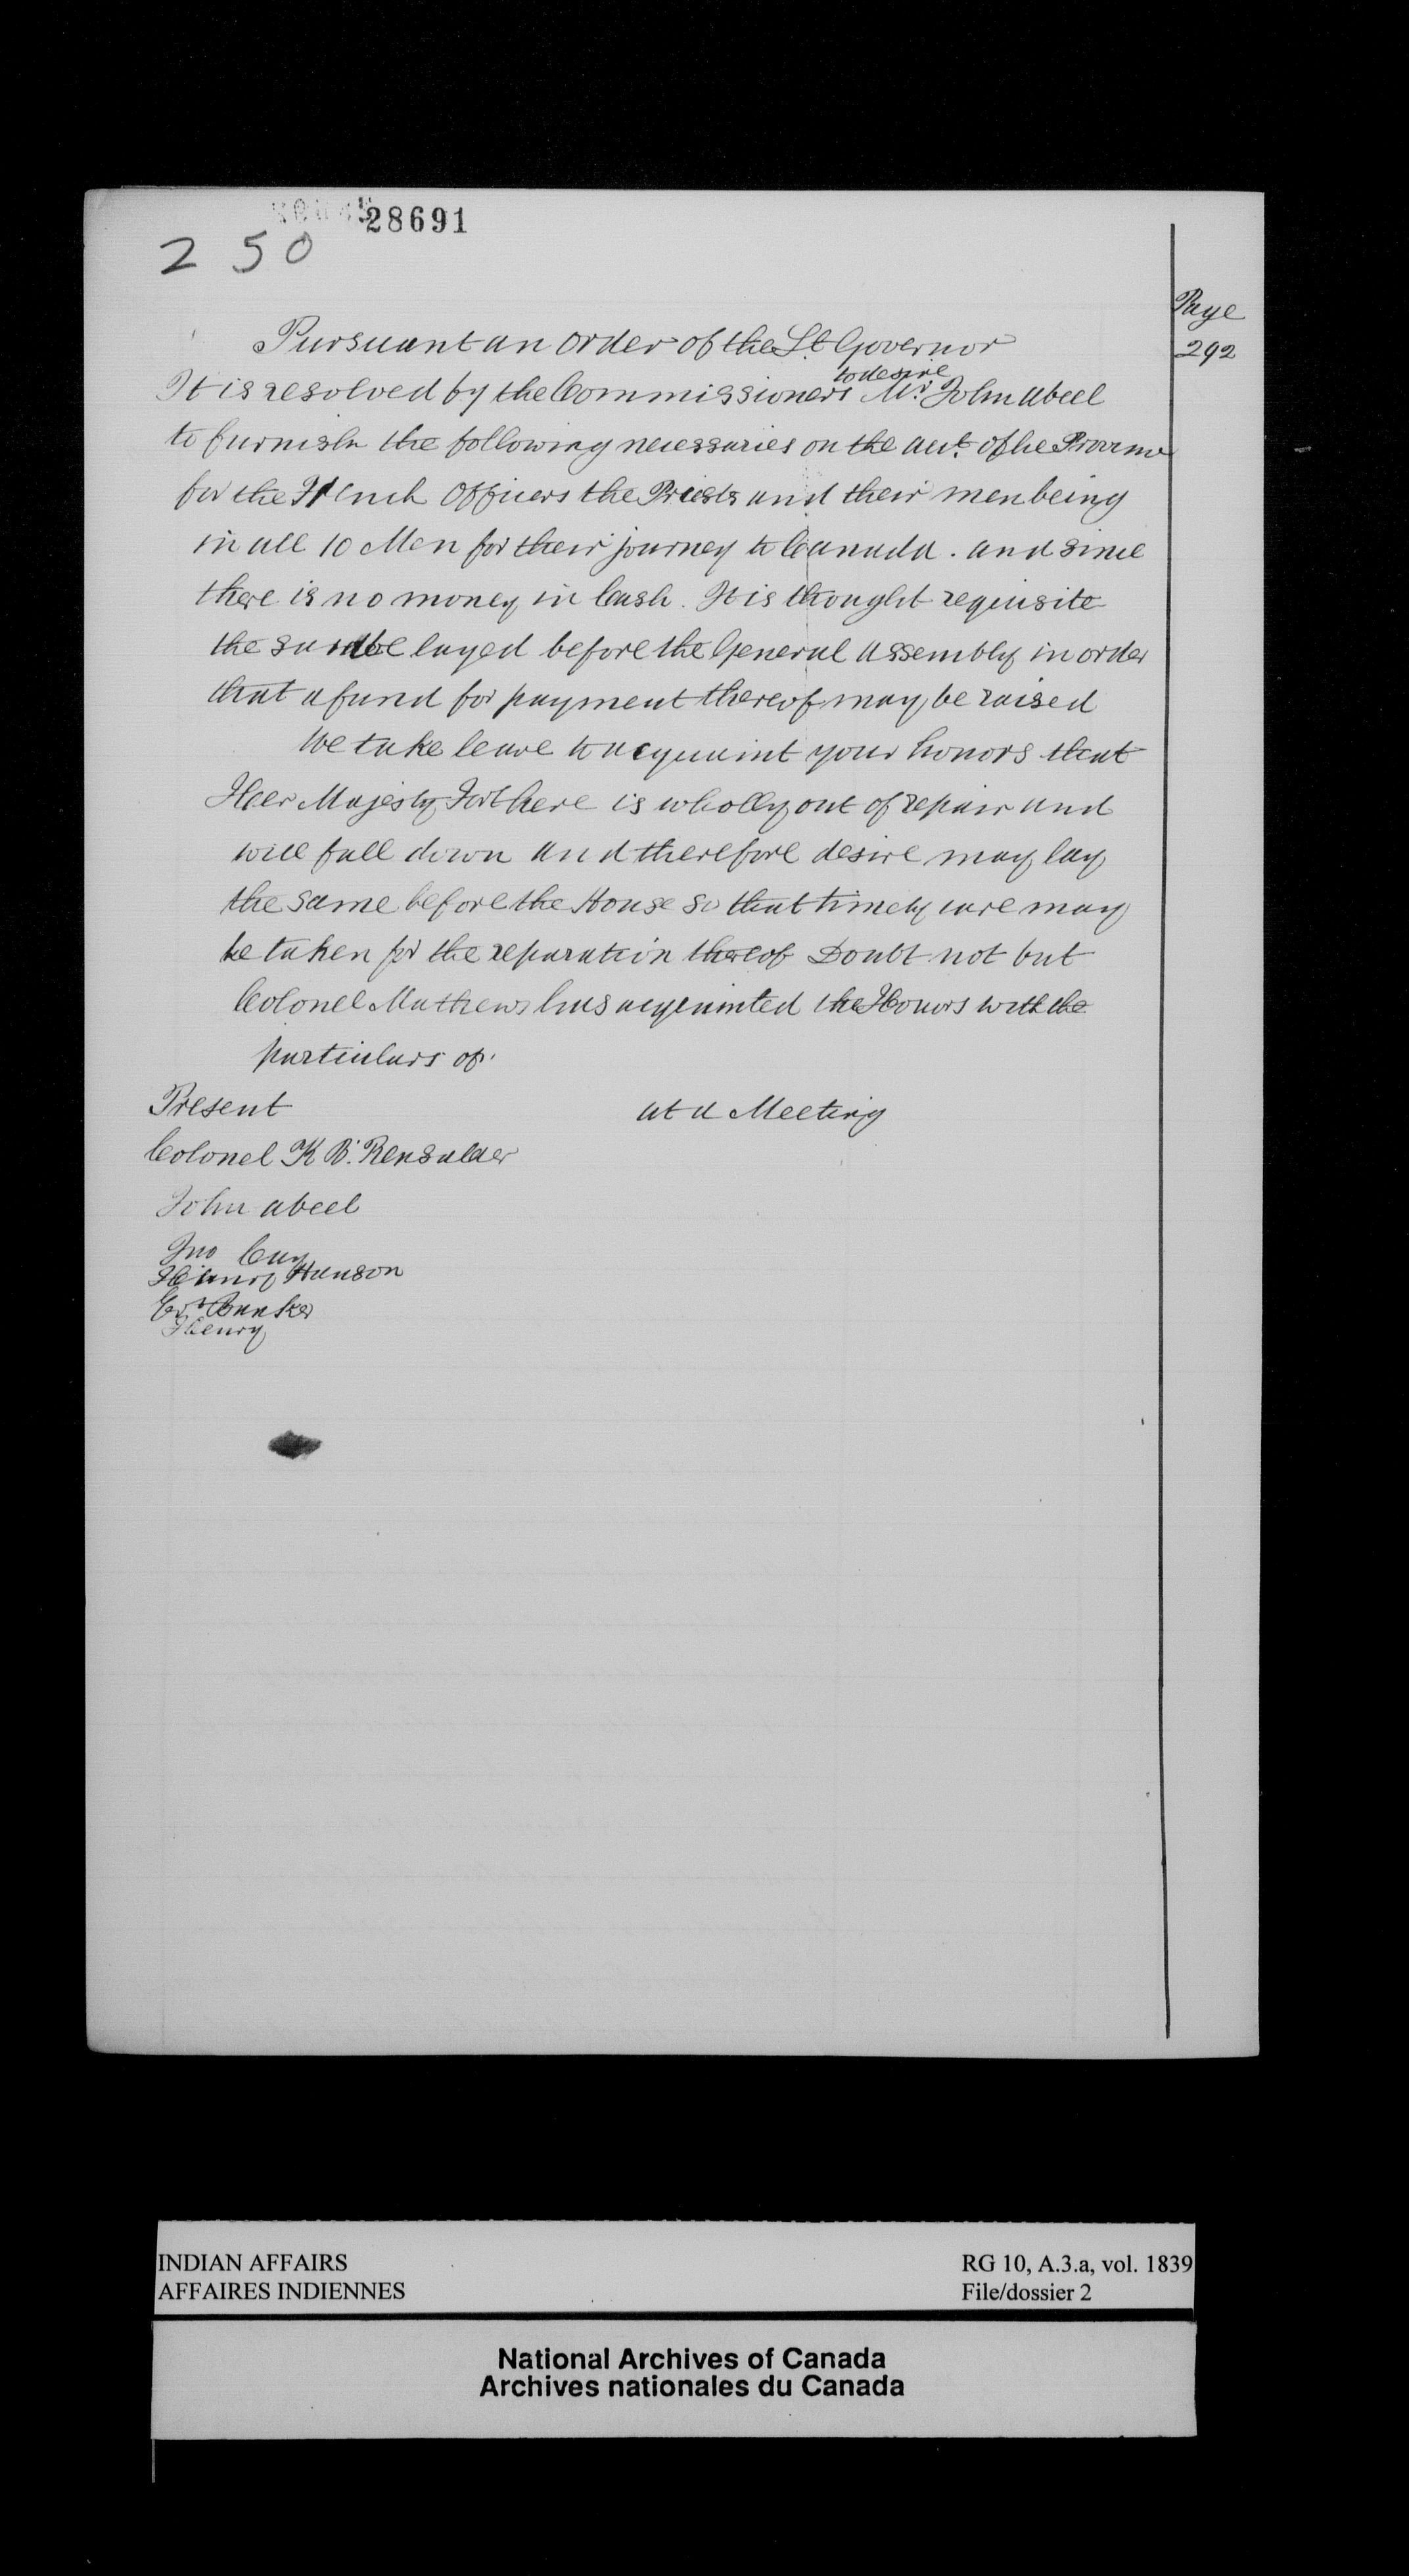 28691
2 50
Page
292
Pursuant an order of the Lt Governor
to desire
It is resolved by the Commissioners Mr. John Abeel
to furnish the following necessaries on the acct. of he Province
for the French Officers the Priests and their men being
in all 10 Men for their journey to Canada. and since
there is no money in Cash. It is thought requisite
the same be layed before the General Assembly in order
that a fund for payment thereof may be raised
We take leave to acquaint your honors that
Her Majesty Fort here is wholly out of repair and
will fall down and therefore desire may lay
the same before the House so that timely care may
be taken for the reparation thereof Doubt not but
Colonel Mathews has acquinted the Honors with the
particulars of.
Present
at a Meeting
Colonel K B. Rensalaer
John Abeel
Jno Cuy
Henry Hanson
Evt Banker
Henry
INDIAN AFFAIRS
AFFAIRES INDIENNES
RG 10, A.3.a, vol. 1839
File/dossier 2
National Archives of Canada
Archives nationales du Canada